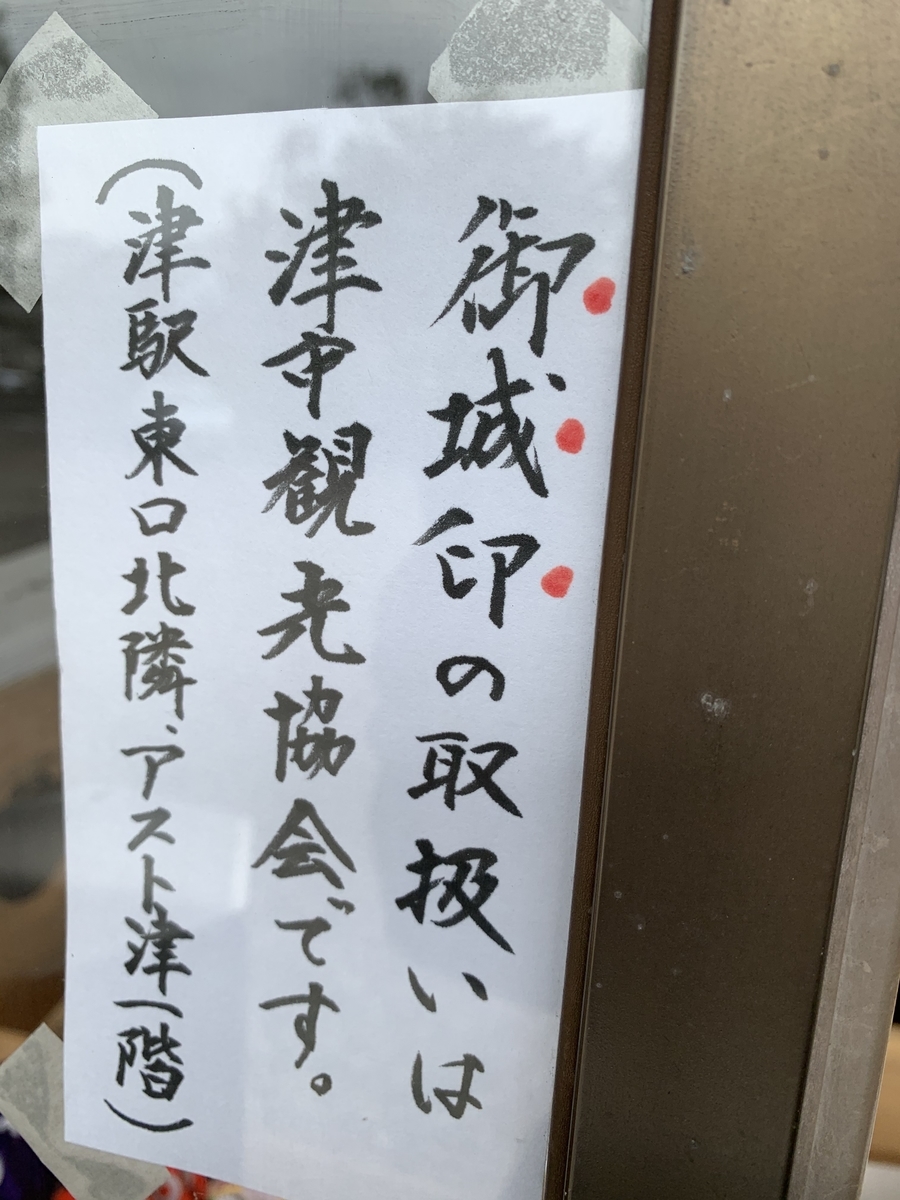 御城印の取扱いは
津市観光協会です。
(津駅東口北隣、アスト津一階)